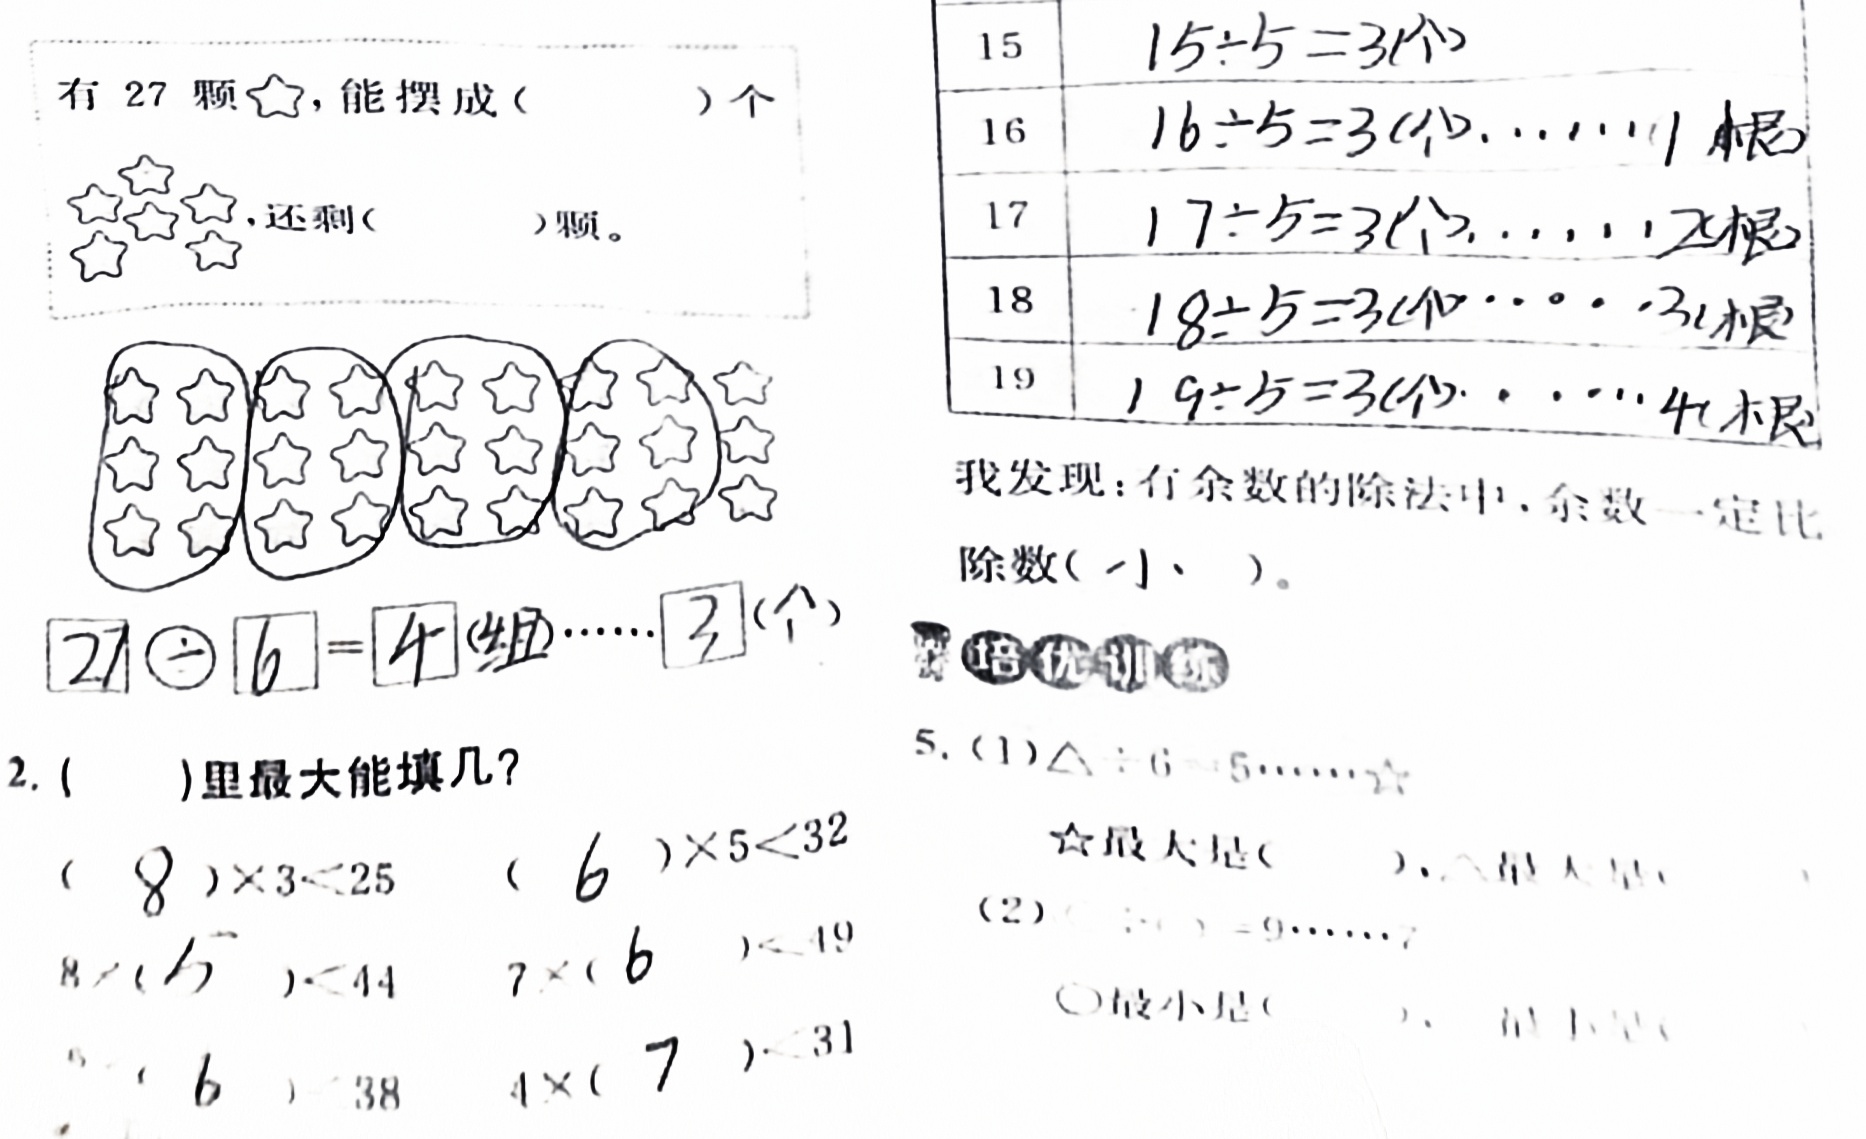 有 27 颗☆,能摆成(    )个
,还剩(    )颗。
27÷6=4(组)……3(个)
2.(    )里最大能填几?
(8)×3<25 (6)×5<32
8×(5)<44 7×(6)<49
(6) 38 4×(7)<31
15 15÷5=3(个)
16 16÷5=3(个)……1(根)
17 17÷5=3(个)……2(根)
18 18÷5=3(个)……3(根)
19 19÷5=3(个)……4(根)
我发现:有余数的除法中,余数一定比
除数(小)。
培优训练
5.(1)△÷6=5……☆
☆最大是(    ),△最大是(    )
(2) ÷( )=9……7
○最小是(    ), 最小是(